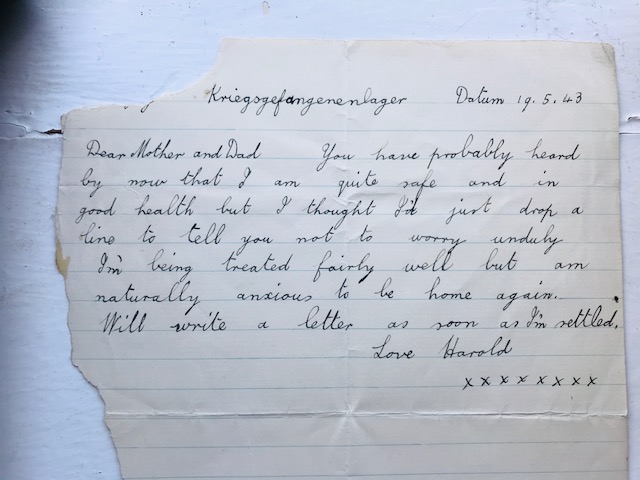 Kriegsgefangenenlager Datum 19.5.43
Dear Mother and Dad You have probably heard
by now that I am quite safe and in
good health but I thought I'd just drop a
line to tell you not to worry unduly
I'm being treated fairly well but am
naturally anxious to be home again.
Will write a letter as soon as I'm settled.
Love Harold
xxxxxxxx